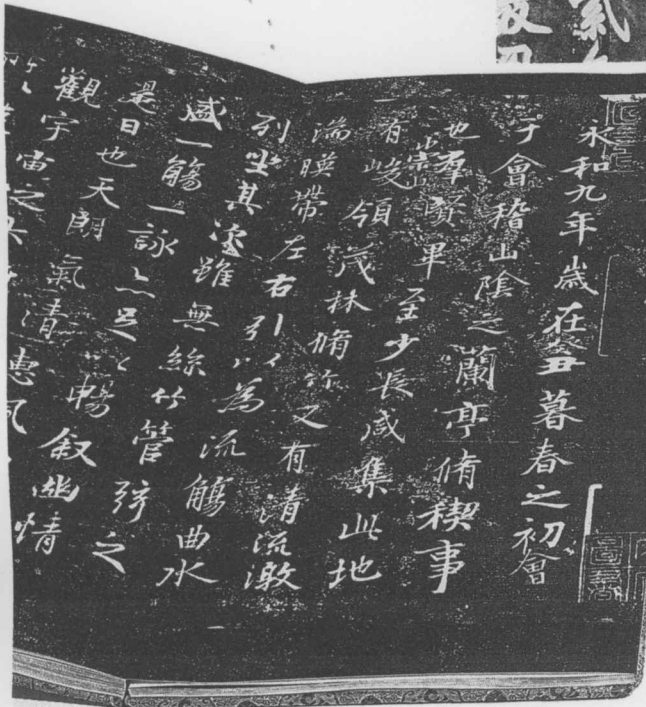 永和九年歲在癸丑暮春之初會
于會稽山陰之蘭亭脩稧事
也羣賢畢至少長咸集此地
有崇山峻領茂林脩竹又有清流激
湍暎帶左右引以為流觴曲水
列坐其次雖無絲竹管弦之
盛一觴一詠亦足以暢叙幽情
是日也天朗氣清惠風
觀宇宙之